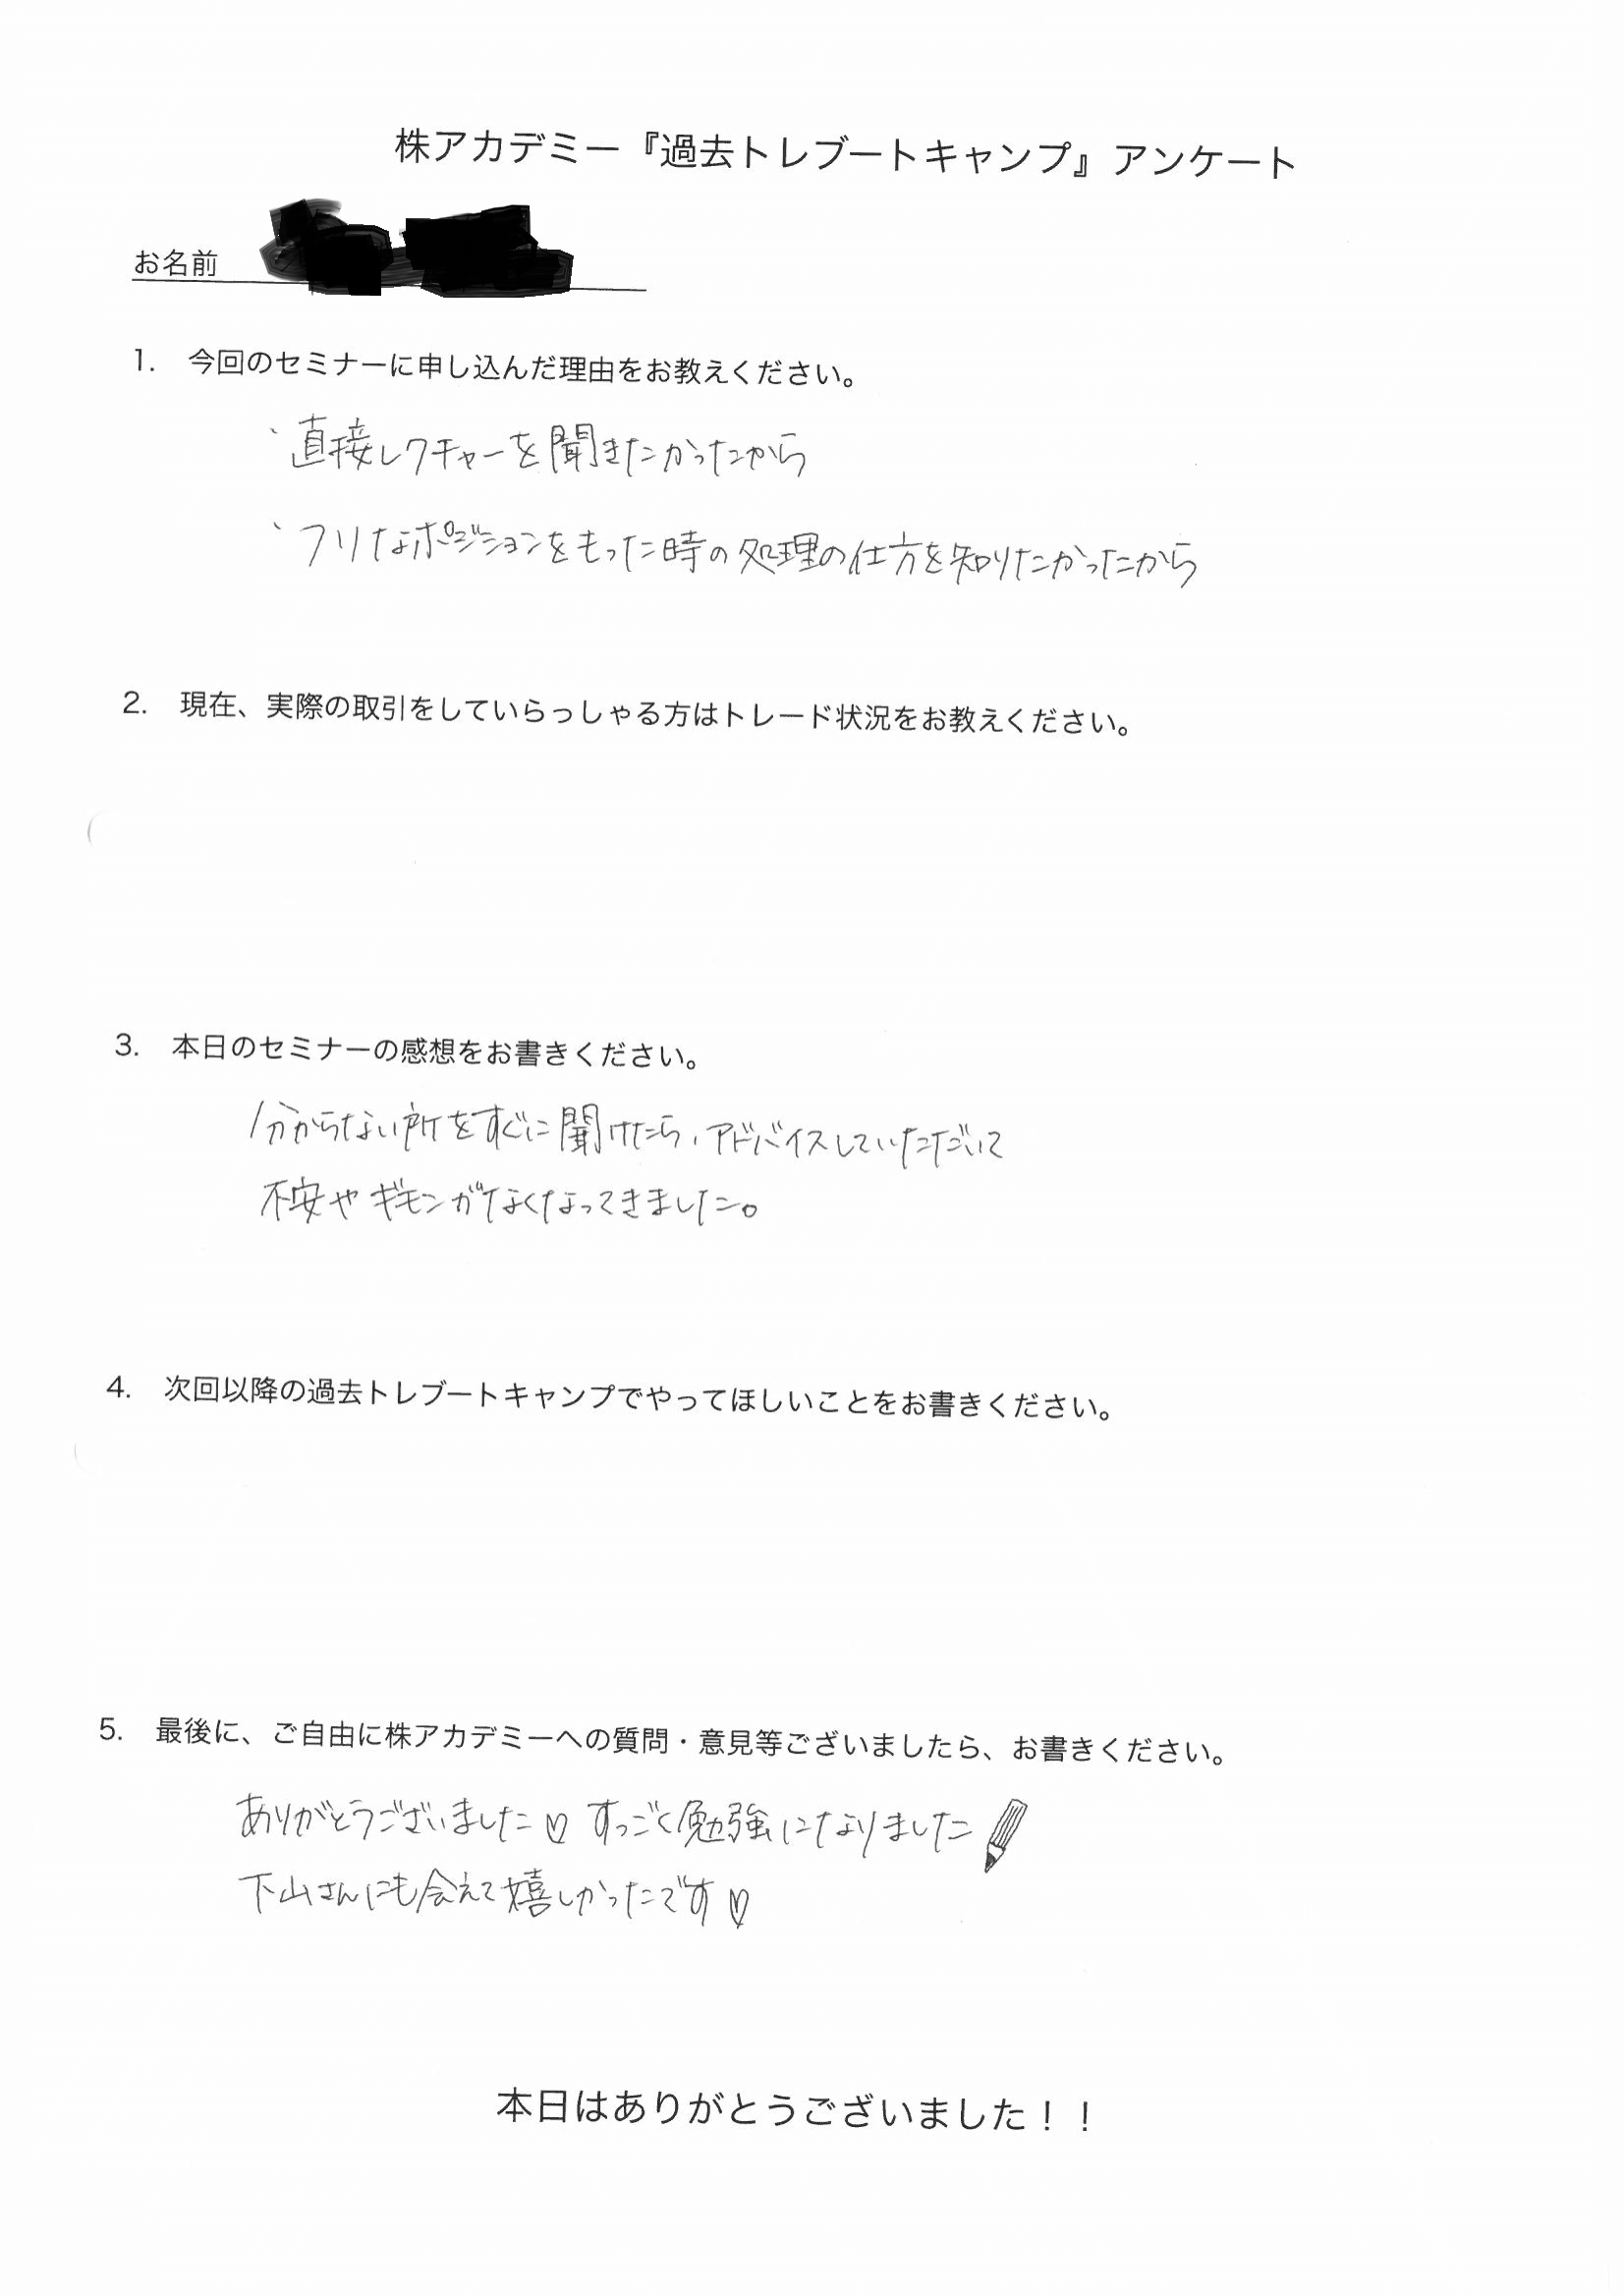 株アカデミー『過去トレブートキャンプ』アンケート
お名前
1. 今回のセミナーに申し込んだ理由をお教えください。
・直接レクチャーを聞きたかったから
・フリなポジションをもった時の処理の仕方を知りたかったから
2. 現在、実際の取引をしていらっしゃる方はトレード状況をお教えください。
3. 本日のセミナーの感想をお書きください。
分からない所をすぐに聞けたら、アドバイスしていただいて
不安やギモンがなくなってきました。
4. 次回以降の過去トレブートキャンプでやってほしいことをお書きください。
5. 最後に、ご自由に株アカデミーへの質問・意見等ございましたら、お書きください。
ありがとうございました♡ すっごく勉強になりました
下山さんにも会えて嬉しかったです♡
本日はありがとうございました！！